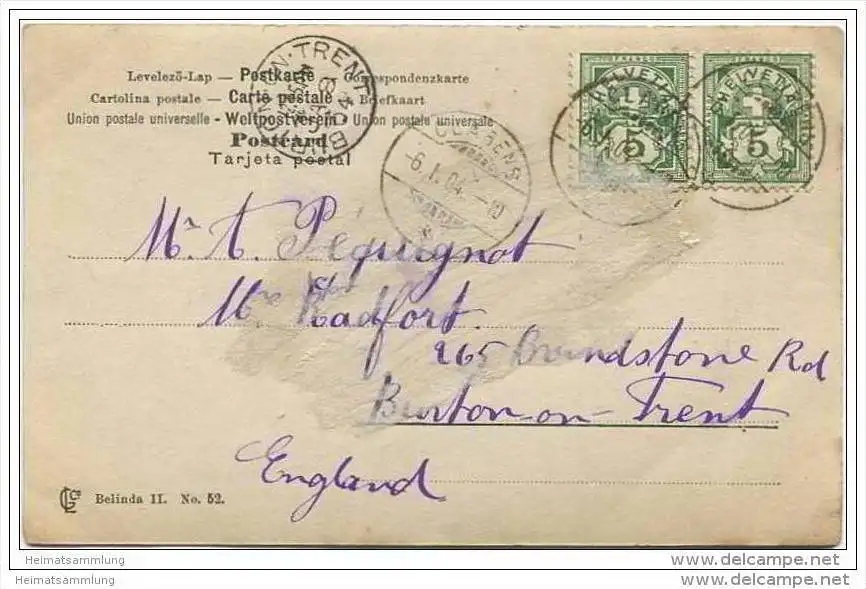 Levelező-Lap — Postkarte — Correspondenzkarte
Cartolina postale — Carte postale — Briefkaart
Union postale universelle - Weltpostverein - Union postale universale
Postcard
Tarjeta postal
BURTON-ON-TRENT
JA 8
04
CLARENS
-6.I.04.-10
FRANCO
HELVETIA
5
FRANCO
HELVETIA
5
Mr. A. Péquignot
Mme Radfort.
265 Brandstone Rd
Burton-on-Trent
England
Belinda II. No. 52.
Heimatsammlung
Heimatsammlung
www.delcampe.net